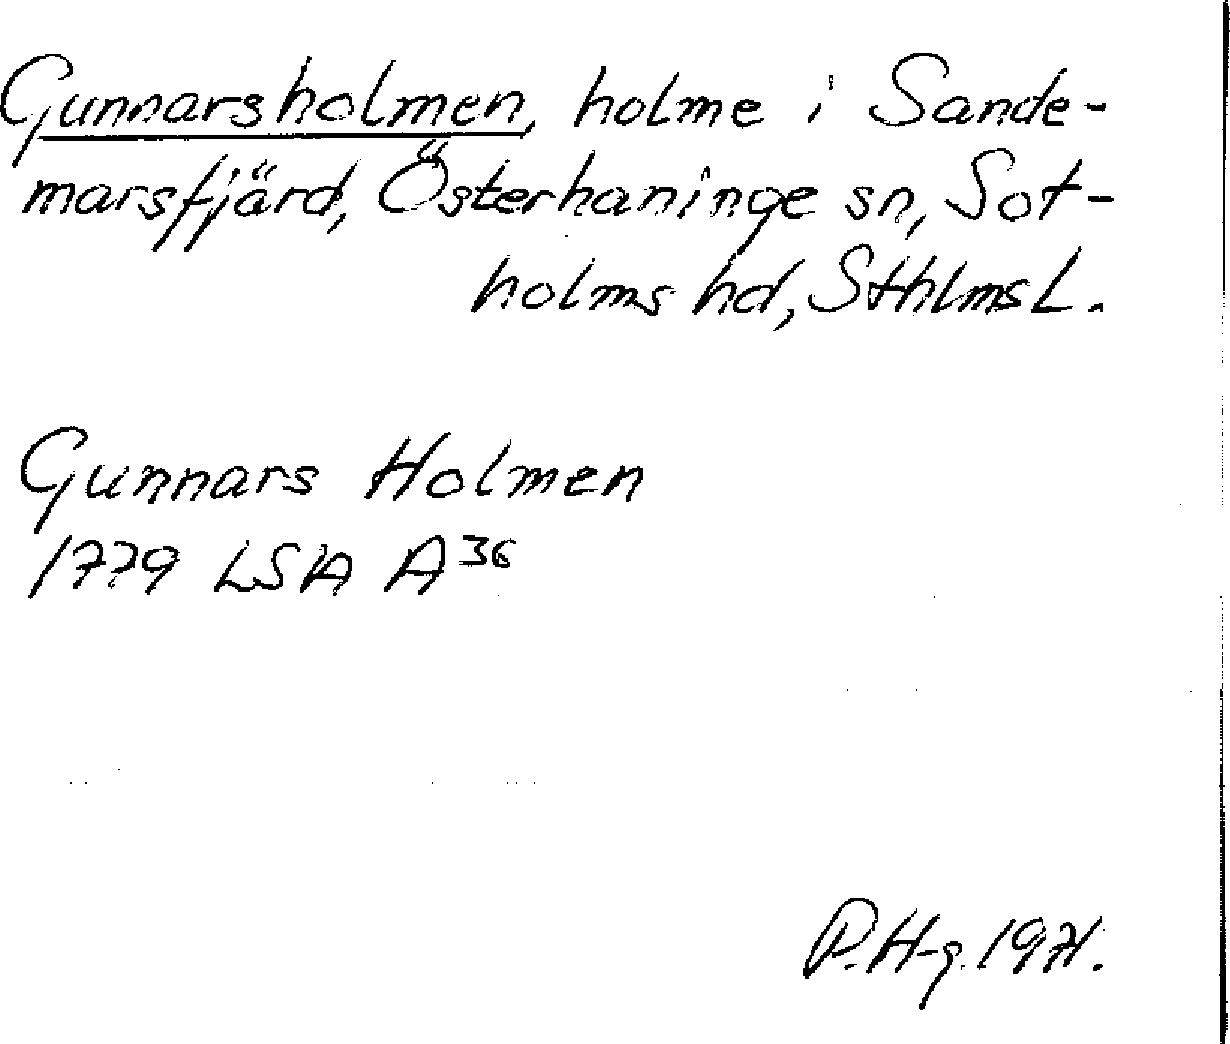 Gunnarsholmen, holme i Sande-
marsfjärd, Österhaninge sn, Sot-
holms hd, Sthlms L.
Gunnars Holmen
1779 LSA A³⁶
P. H-g. 1971.